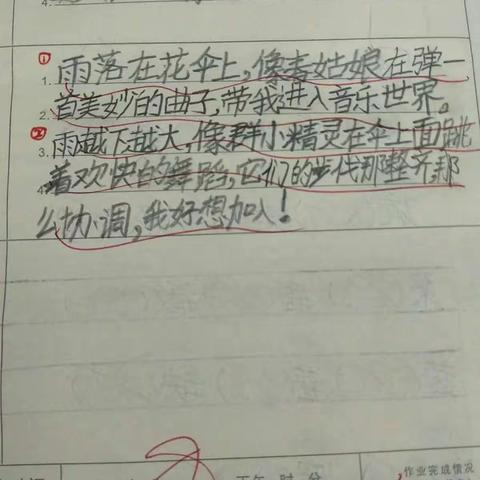 4.
①
1. 雨落在花伞上,像春姑娘在弹一
2. 首美妙的曲子,带我进入音乐世界。
②
3. 雨越下越大,像群小精灵在伞上面跳
4. 着欢快的舞蹈,它们的步伐那整齐,那
么协调,我好想加入!
下午 时 分
作业完成情况